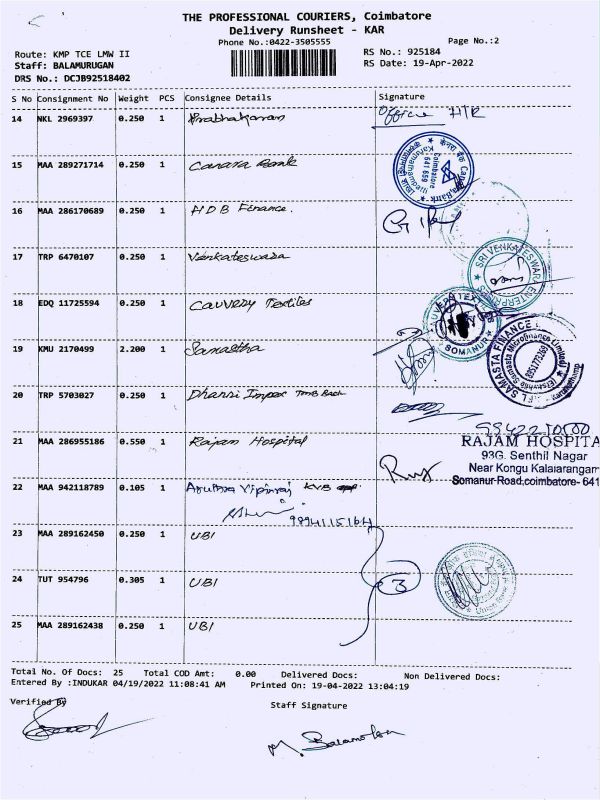 THE PROFESSIONAL COURIERS, Coimbatore
Delivery Runsheet - KAR
Phone No.:0422-3505555
Page No.:2
Route: KMP TCE LMW II
RS No.: 925184
Staff: BALAMURUGAN
RS Date: 19-Apr-2022
DRS No.: DCJB92518402
S No Consignment No Weight PCS Consignee Details Signature
14 NKL 2969397 0.250 1 Prabhakaran Office H/R
15 MAA 289271714 0.250 1 Canara Bank
Canara Bank
Coimbatore
641 659
16 MAA 286170689 0.250 1 HDB Finance.
17 TRP 6470107 0.250 1 Venkateswara
SRI VENKATESWAR ENTERPR
18 EDQ 11725594 0.250 1 Cauvery Textiles
SOMANUR
19 KMU 2170499 2.200 1 Samastha
SAMASTA FINANCE
Samasta Microfinance Limited
20 TRP 5703027 0.250 1 Dharsi Impex TMB Back
21 MAA 286955186 0.550 1 Rajam Hospital
RAJAM HOSPITA
93G. Senthil Nagar
Near Kongu Kalaiarangam
Somanur-Road,coimbatore- 641
22 MAA 942118789 0.105 1 KVB
23 MAA 289162450 0.250 1 UBI
24 TUT 954796 0.305 1 UBI 3
25 MAA 289162438 0.250 1 UBI
Total No. Of Docs: 25 Total COD Amt: 0.00 Delivered Docs: Non Delivered Docs:
Entered By :INDUKAR 04/19/2022 11:08:41 AM Printed On: 19-04-2022 13:04:19
Verified By
Staff Signature